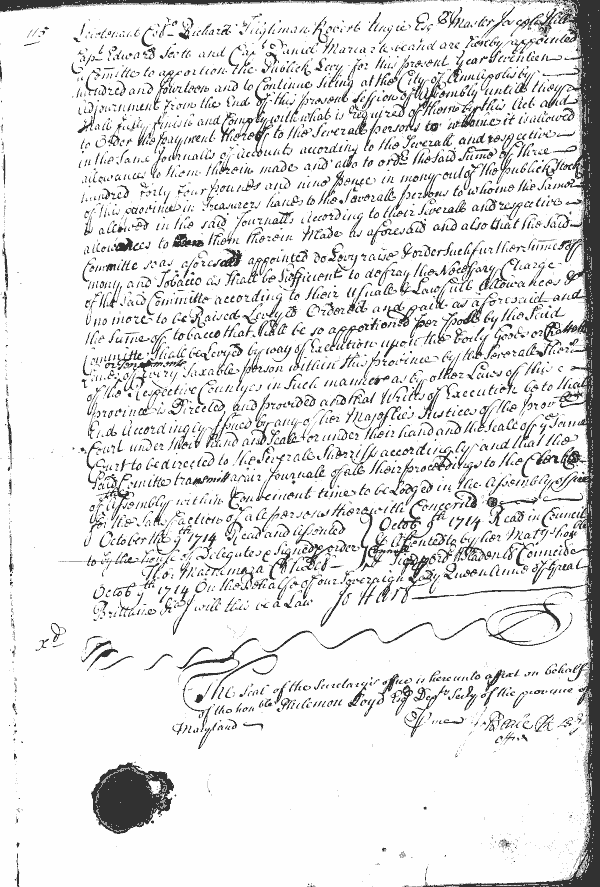 115
Lieutenant Coll.o Richard Tilghman Robert Ungle Esq.r Master Joseph Hill
Cap.t Edward Scott and Cap.t Daniel Mariartee and are hereby appointed
a Comitte to apportion the Publick Levy for this present Year Seventeen
hundred and fourteen and to Continue sitting at the City of Annapolis by
adjournment from the End of this present Session of Assembly untill they
shall fully finish and Comply with what is required of them by this Act and
to Order the payment thereof to the Severall persons to whome it is allowed
in the Same Journalls of Accounts according to the Severall and respective
allowances to them therein made and also to order the said Sume of three
hundred forty four pounds and nine pence in mony out of the publick Stock
of this province in Treasurers hands to the Severall persons to whome the Same
is allowed in the said Journalls According to their Severall and respective
allowances to them therein Made as aforesaid and also that the said
Committe so as aforesaid appointed do Levy raise & order such further sume of
mony and Tobacco as shall be Sufficient to defray the Necessary Charge
of the said Committe according to their Usuall & Lawfull allowances &
no more to be Raised Levyed Ordered and paid as aforesaid and
the Sume of tobacco that shall be so apportioned per Poll by the said
Committe shall be Levyed by way of Execution upon the Body Goods or Chattells
Lands or Tenements of Every Taxable person within this province by the Severall Sher
of the respective Countys in Such manner as by other Laws of this
province is Directed and provided and that Writts of Execution be to that
End Accordingly Issued by any of her Majesties Justices of the Prov
Court under their hand and Seale or under their hand and the Seale of y.e Same
Court to be directed to the Severall Sherriffs accordingly and that the
said Comitte transmit a fair Journall of all their proceedings to the Clerks
of Assembly within Convenient time to be Lodged in the Assembly office
for the Satisfaction of all persons therewith Concerned
October the 9th 1714 Read and assented
to by the house of Delegates
Signed p order
Tho: Macnemara Cl h Del
Octob.r 9th 1714 Read in Councill
& Assented to by her Maty.s hon.ble
Signed p order
Octob.r 9th 1714 On the Behalfe of our Soveraign Lady Queen Anne of Great
Brittaine &c I will this be a Law Jo Hart
The Seal of the Secretarys office is hereunto affixt on behalf
of the hon.ble Philemon Lloyd Esq.r Dep.ty Sec.ry of the province of
Maryland
p me
Beale
office